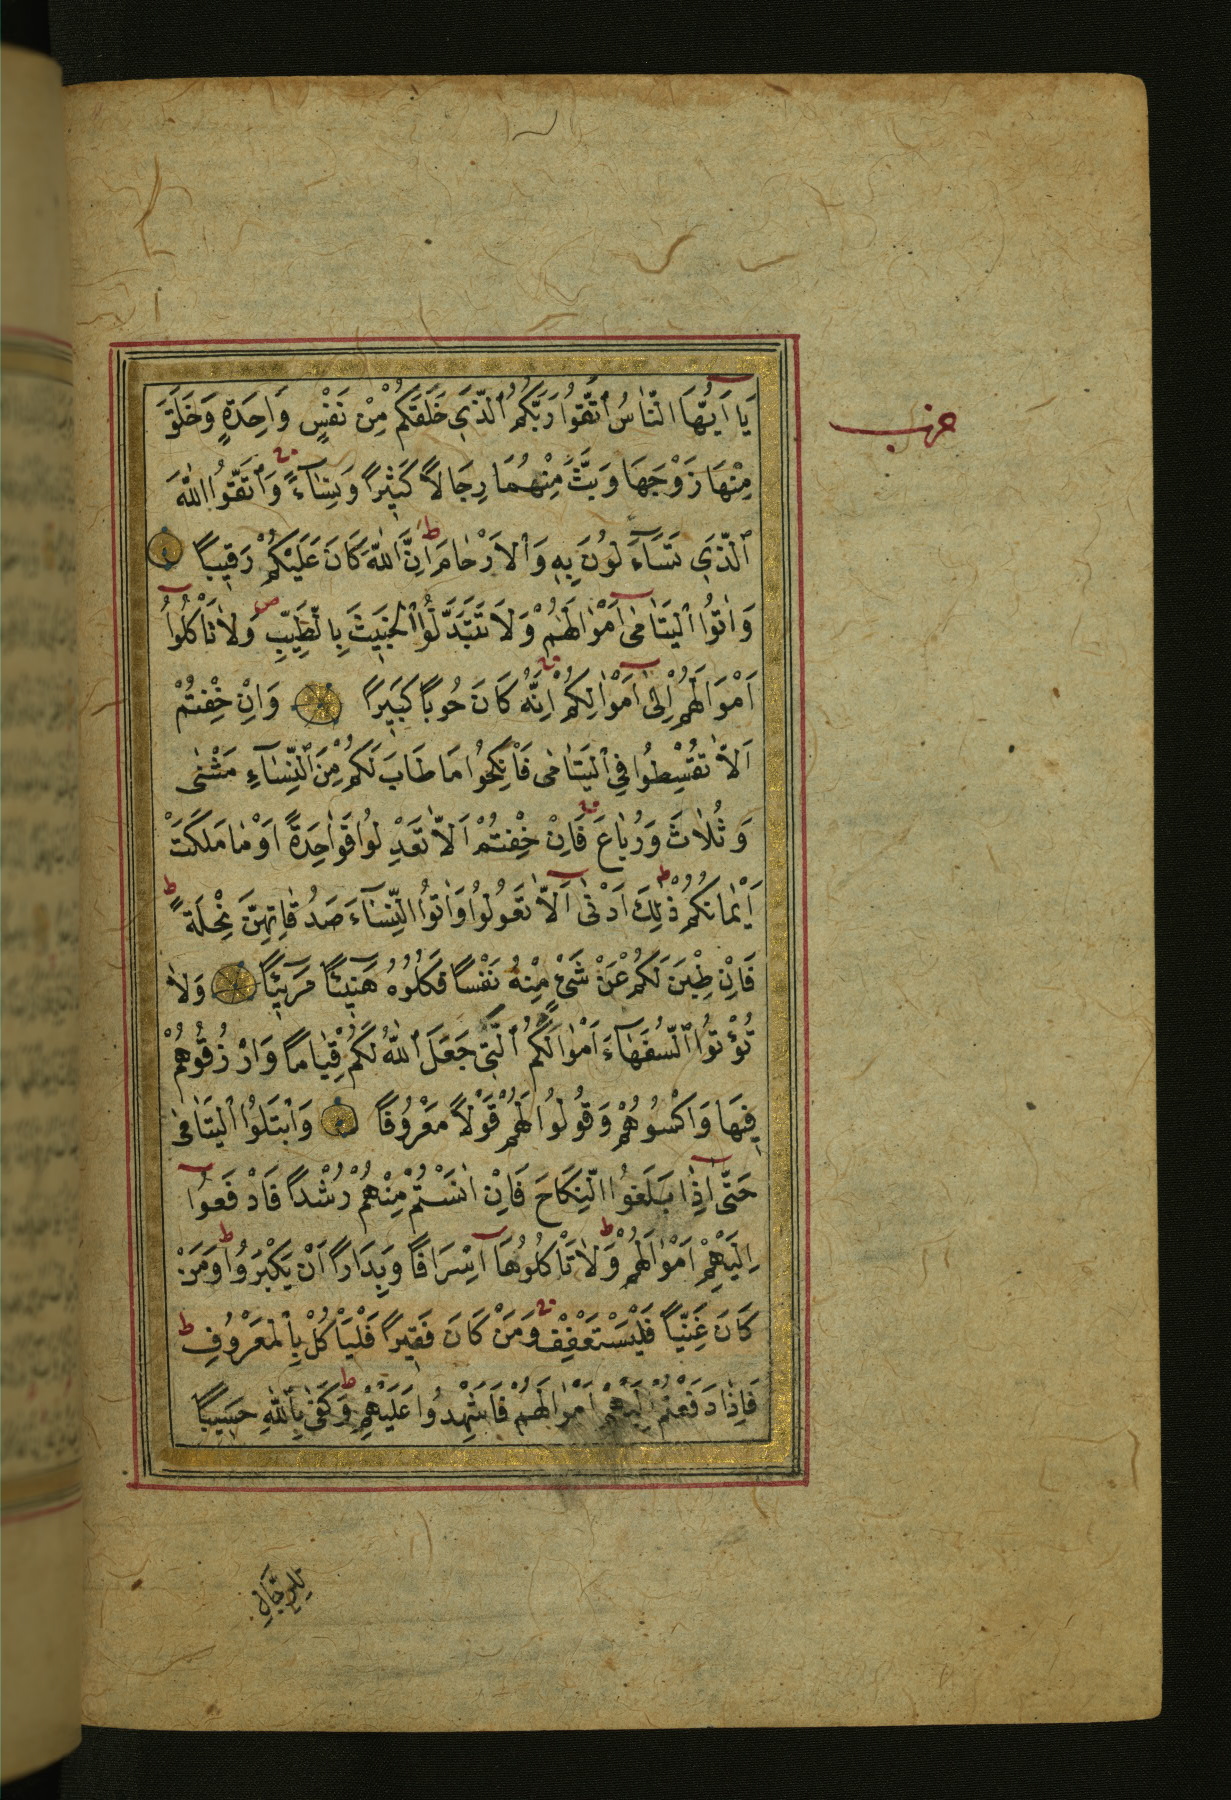 يَا اَيُّهَا النَّاسُ ٱتَّقُوا رَبَّكُمُ ٱلَّذِي خَلَقَكُمْ مِنْ نَفْسٍ وَاحِدَةٍ وَخَلَقَ
حزب
مِنْهَا زَوْجَهَا وَبَثَّ مِنْهُمَا رِجَالًا كَثِيرًا وَنِسَآءً وَٱتَّقُوا اللّٰهَ
ٱلَّذِي تَسَآءَلُونَ بِهِ وَٱلْاَرْحَامَ اِنَّ اللّٰهَ كَانَ عَلَيْكُمْ رَقِيبًا
وَاٰتُوا ٱلْيَتَامٰى اَمْوٰالَهُمْ وَلَا تَتَبَدَّلُوا ٱلْخَبِيثَ بِالطَّيِّبِ وَلَا تَأْكُلُوا
اَمْوَالَهُمْ اِلٰى اَمْوٰالِكُمْ اِنَّهُ كَانَ حُوبًا كَبِيرًا وَاِنْ خِفْتُمْ
اَلَّا تُقْسِطُوا فِي ٱلْيَتَامٰى فَانْكِحُوا مَا طَابَ لَكُمْ مِنَ ٱلنِّسَاءِ مَثْنٰى
وَثُلٰاثَ وَرُبَاعَ فَاِنْ خِفْتُمْ اَلَّا تَعْدِلُوا فَوٰاحِدَةً اَوْ مٰا مَلَكَتْ
اَيْمٰانُكُمْ ذٰلِكَ اَدْنٰى اَلَّا تَعُولُوا وَاٰتُوا النِّسَآءَ صَدُقَاتِهِنَّ نِحْلَةً
فَاِنْ طِبْنَ لَكُمْ عَنْ شَىْءٍ مِنْهُ نَفْسًا فَكُلُوهُ هَنِيئًا مَرِيئًا وَلَا
تُؤْتُوا ٱلسُّفَهَآءَ اَمْوٰالَكُمُ ٱلَّتِي جَعَلَ ٱللّٰهُ لَكُمْ قِيٰامًا وَارْزُقُوهُمْ
فِيهَا وَاكْسُوهُمْ وَقُولُوا لَهُمْ قَوْلًا مَعْرُوفًا وَابْتَلُوا ٱلْيَتَامٰى
حَتّٰى اِذَا بَلَغُوا النِّكَاحَ فَاِنْ اٰنَسْتُمْ مِنْهُمْ رُشْدًا فَادْفَعُوا
اِلَيْهِمْ اَمْوٰالَهُمْ وَلَا تَأْكُلُوهَا اِسْرَافًا وَبِدَارًا اَنْ يَكْبَرُوا وَمَنْ
كَانَ غَنِيًّا فَلْيَسْتَعْفِفْ وَمَنْ كَانَ فَقِيرًا فَلْيَأْكُلْ بِالْمَعْرُوفِ
فَاِذَا دَفَعْتُمْ اِلَيْهِمْ اَمْوٰالَهُمْ فَاَشْهِدُوا عَلَيْهِمْ وَكَفٰى بِاللّٰهِ حَسِيبًا
للرجال